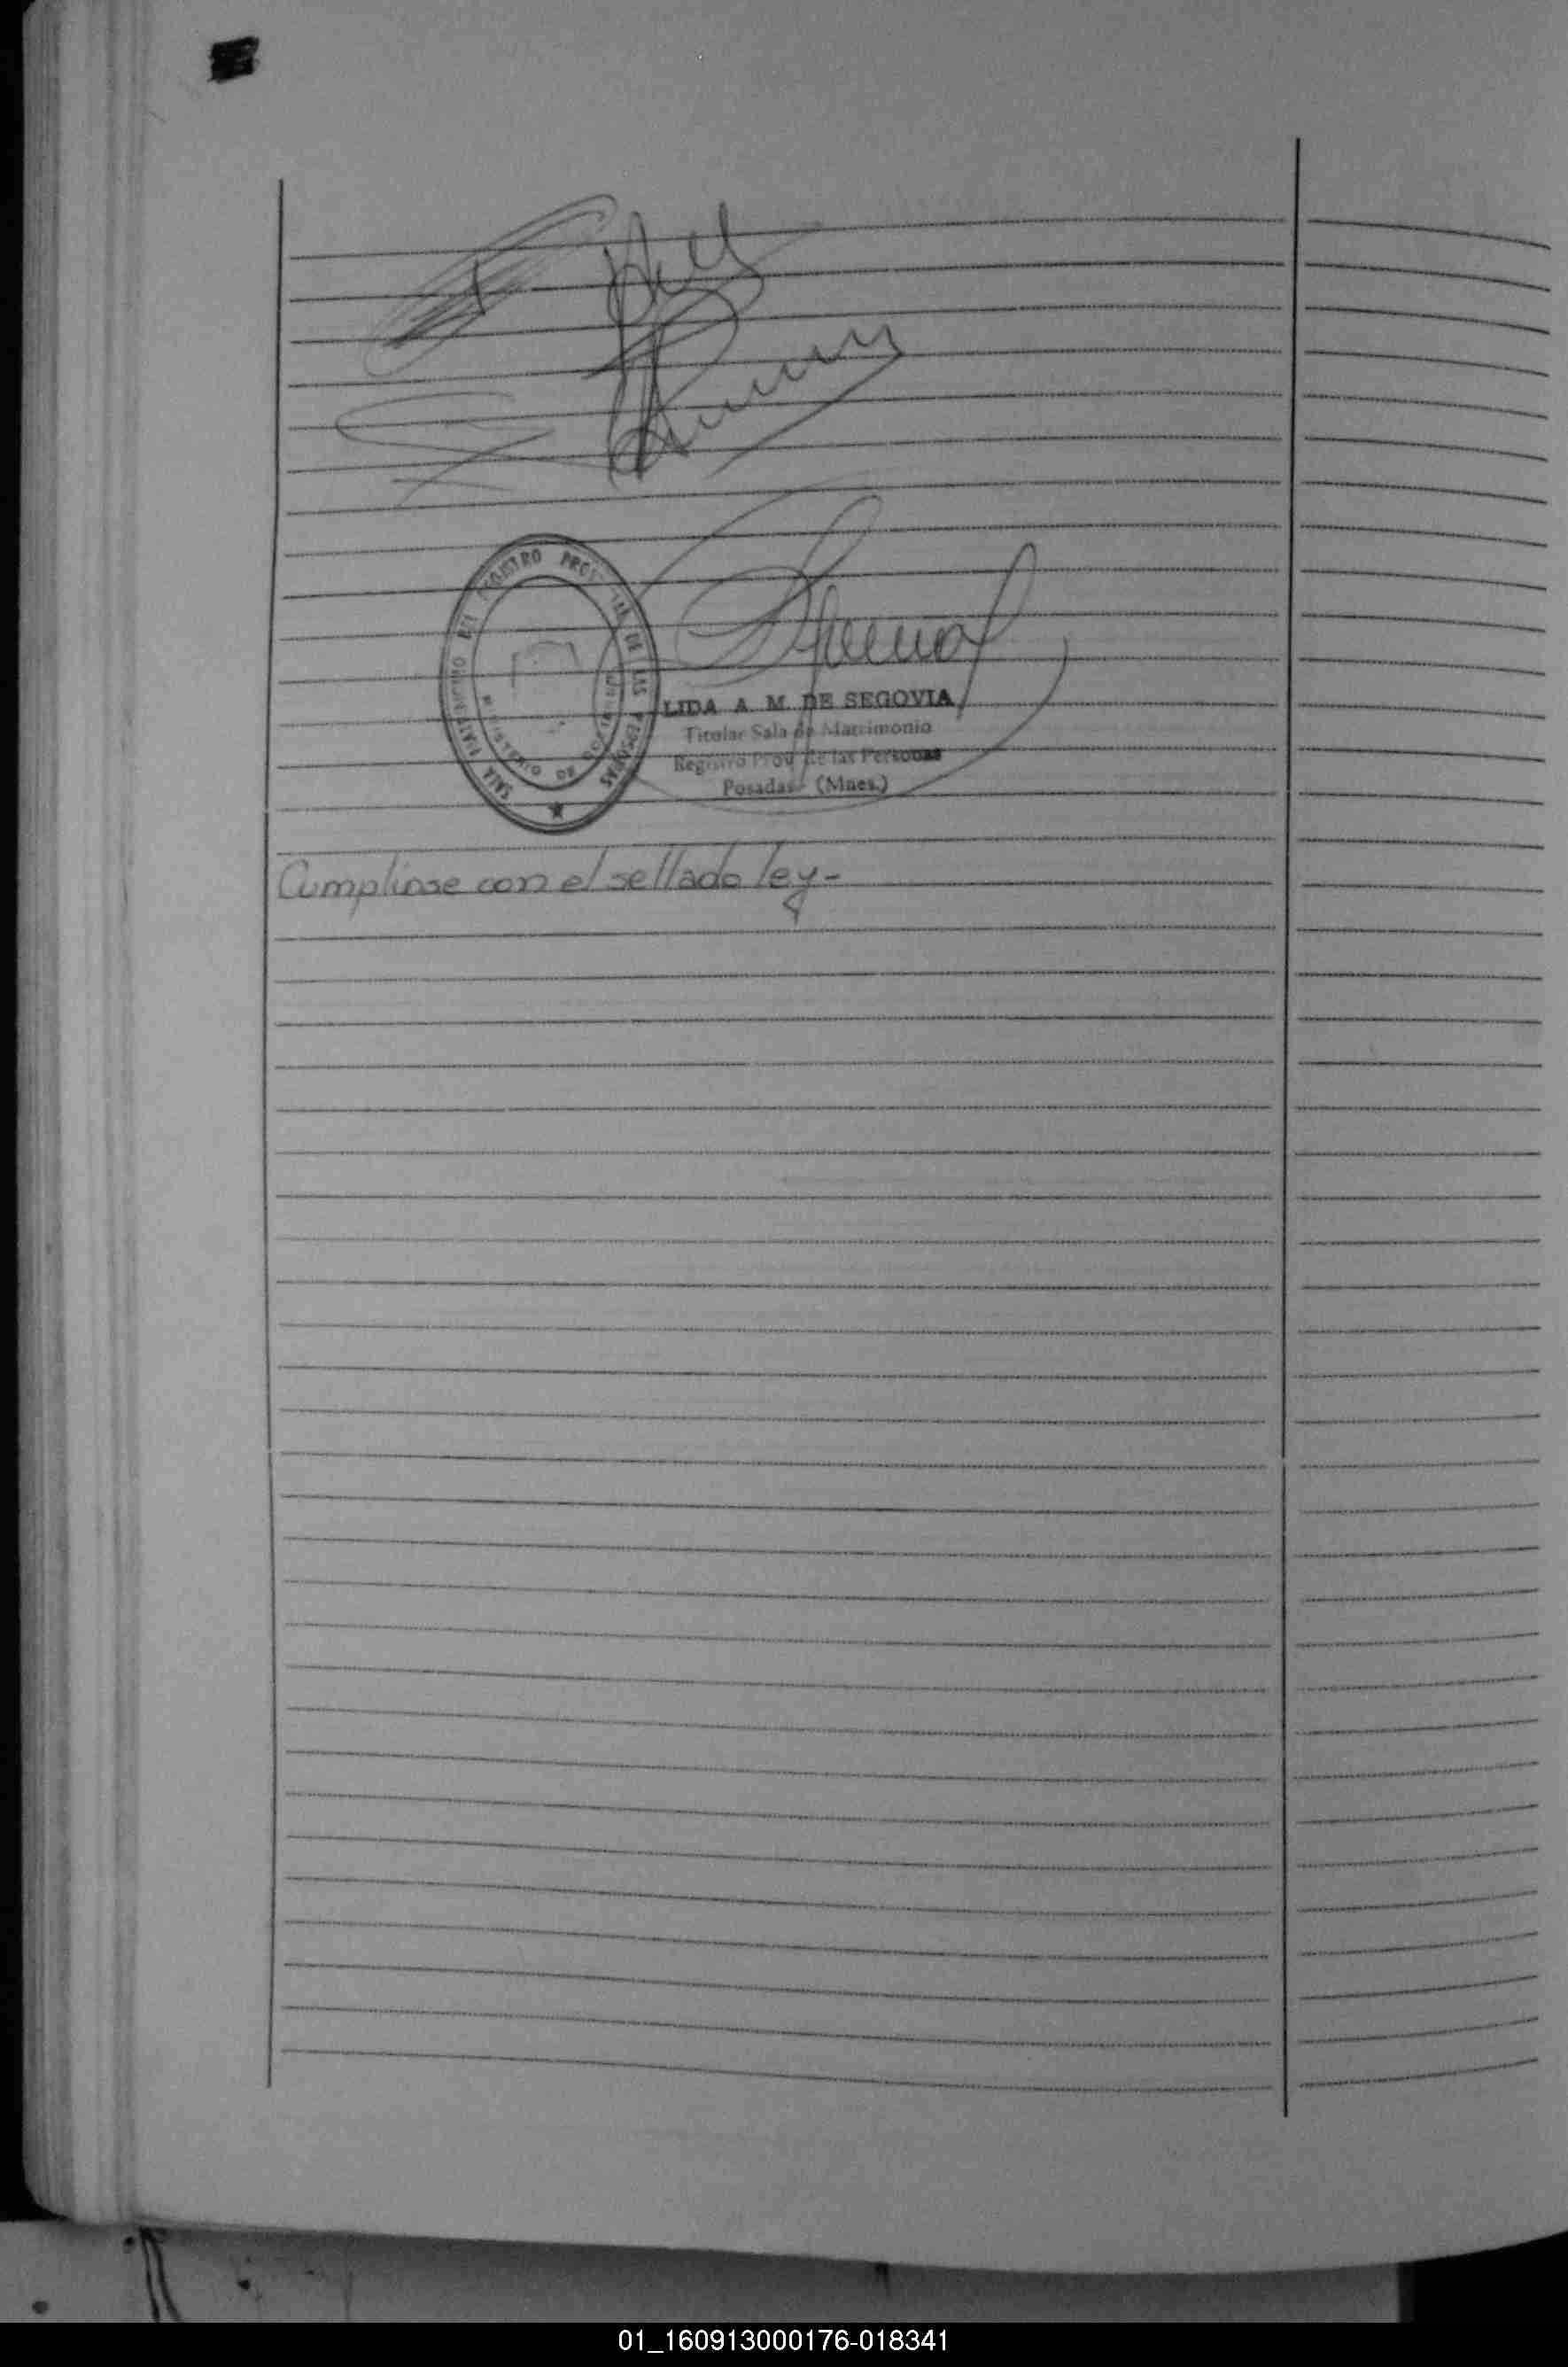 SALA MATRIMONIO DEL REGISTRO PROVINCIAL DE LAS PERSONAS
MINISTERIO DE
LIDA A. M. DE SEGOVIA
Titular Sala de Matrimonio
Registro Prov. de las Personas
Posadas - (Mnes.)
Cumplióse con el sellado ley-
01_160913000176-018341